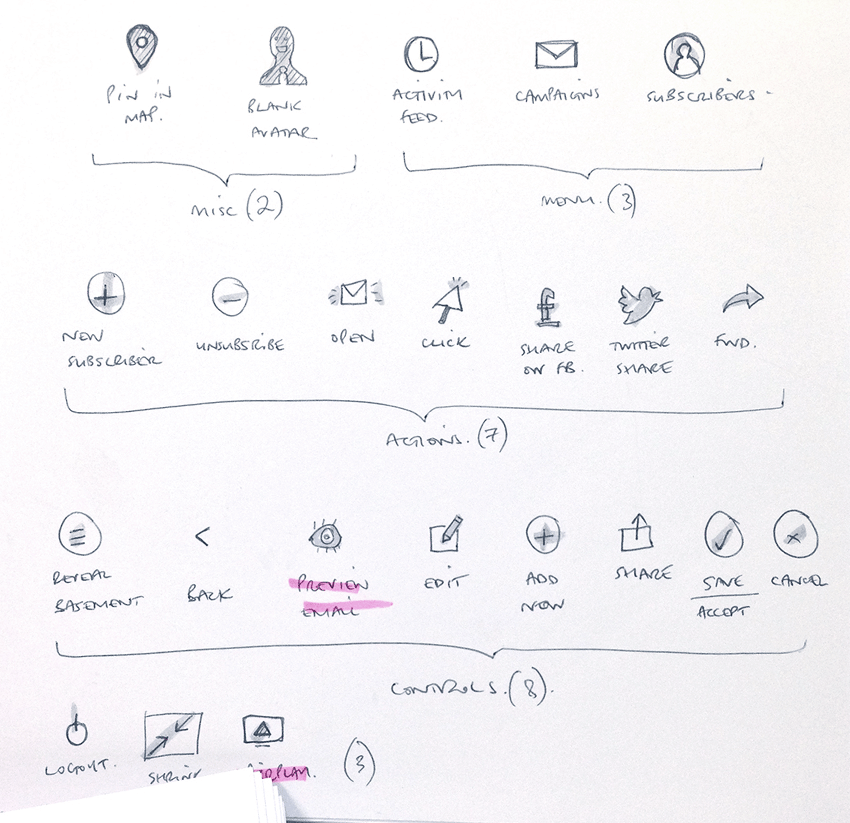 PIN IN
MAP.
BLANK
AVATAR
ACTIVITY
FEED.
CAMPAIGNS
SUBSCRIBERS.
MISC (2)
MENU. (3)
NEW
SUBSCRIBER
UNSUBSRIBE
OPEN
CLICK
SHARE
ON FB.
TWITTER
SHARE
FWD.
ACTIONS. (7)
REVEAL
BASEMENT
BACK
PREVIEW
EMAIL
EDIT
ADD
NEW
SHARE
SAVE
ACCEPT
CANCEL
CONTROLS. (8).
LOGOUT.
SHRINK
(3)